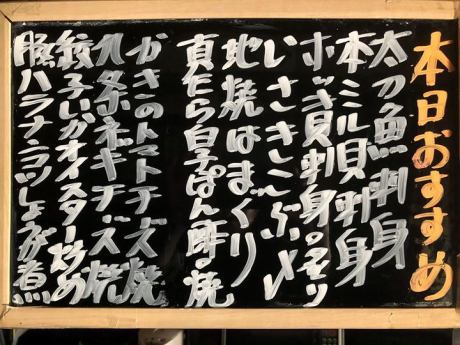 本日おすすめ
太刀魚刺身
本ミル貝刺身
ホッキ貝刺身・炙り
いさきこぶ〆
地焼はまぐり
真たら白子ぽん酢・焼
かきのトマトチーズ焼
九条ネギチーズ焼
絞子いかオイスター炒め
豚ハラナンコツしょうが煮